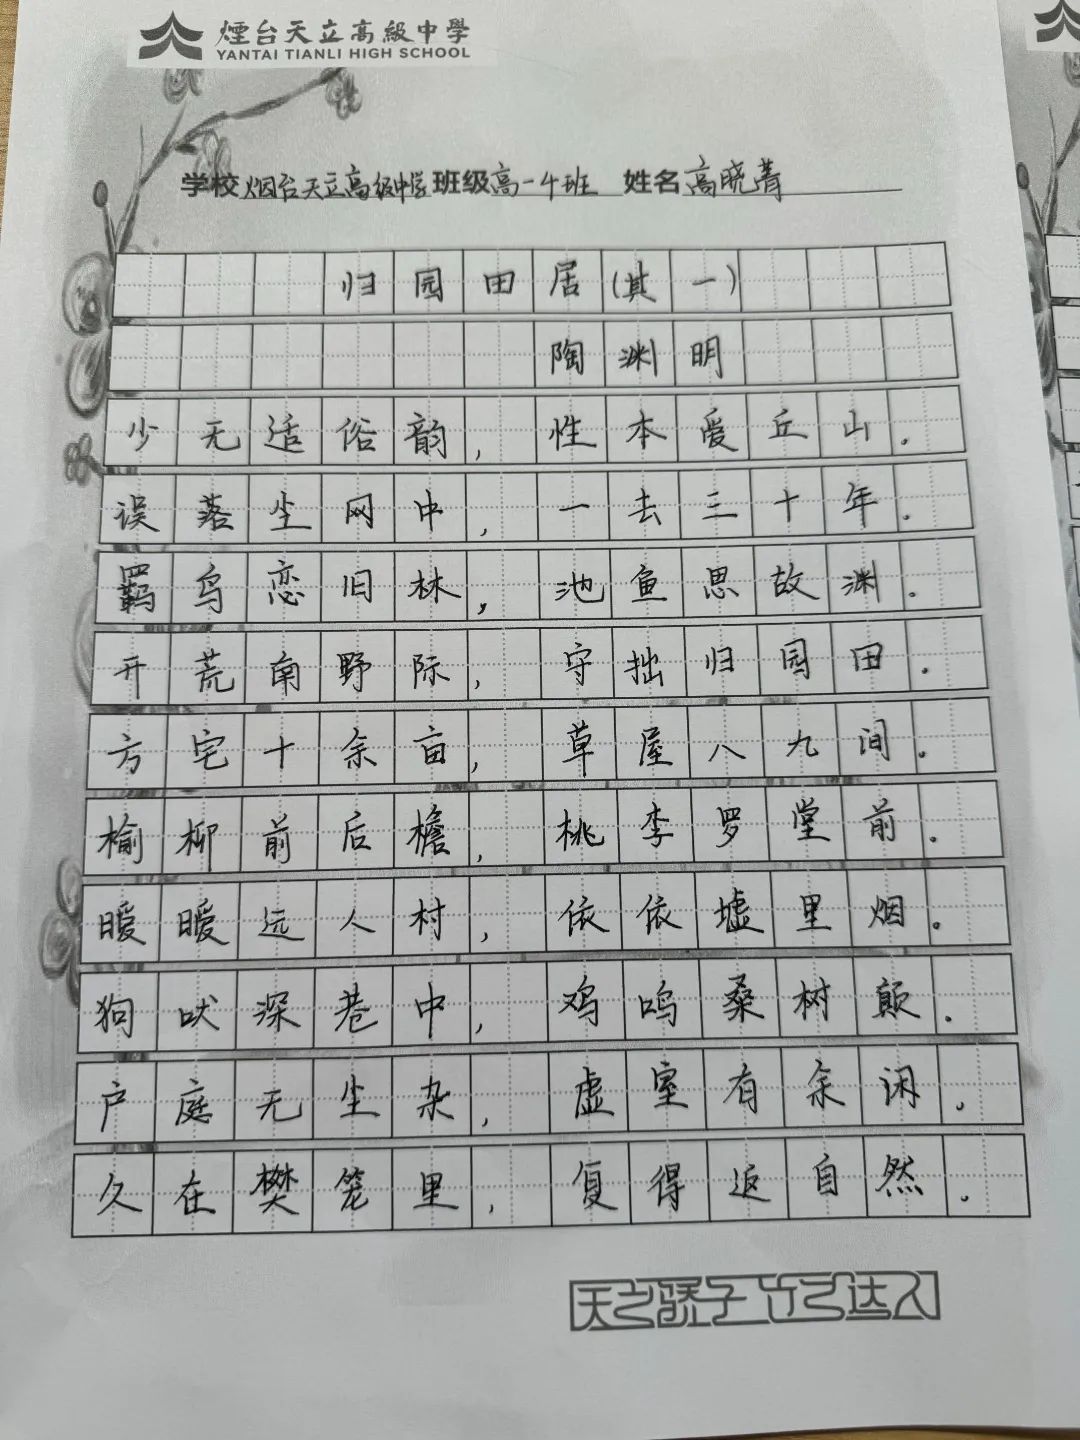 煙台天立高級中學
YANTAI TIANLI HIGH SCHOOL
学校 烟台天立高级中学 班级 高一4班 姓名 高晓菁
归园田居(其一)
陶渊明
少无适俗韵,性本爱丘山.
误落尘网中,一去三十年.
羁鸟恋旧林,池鱼思故渊.
开荒南野际,守拙归园田.
方宅十余亩,草屋八九间.
榆柳前后檐,桃李罗堂前.
暧暧远人村,依依墟里烟.
狗吠深巷中,鸡鸣桑树颠.
户庭无尘杂,虚室有余闲.
久在樊笼里,复得返自然.
天之骄子 立己达人